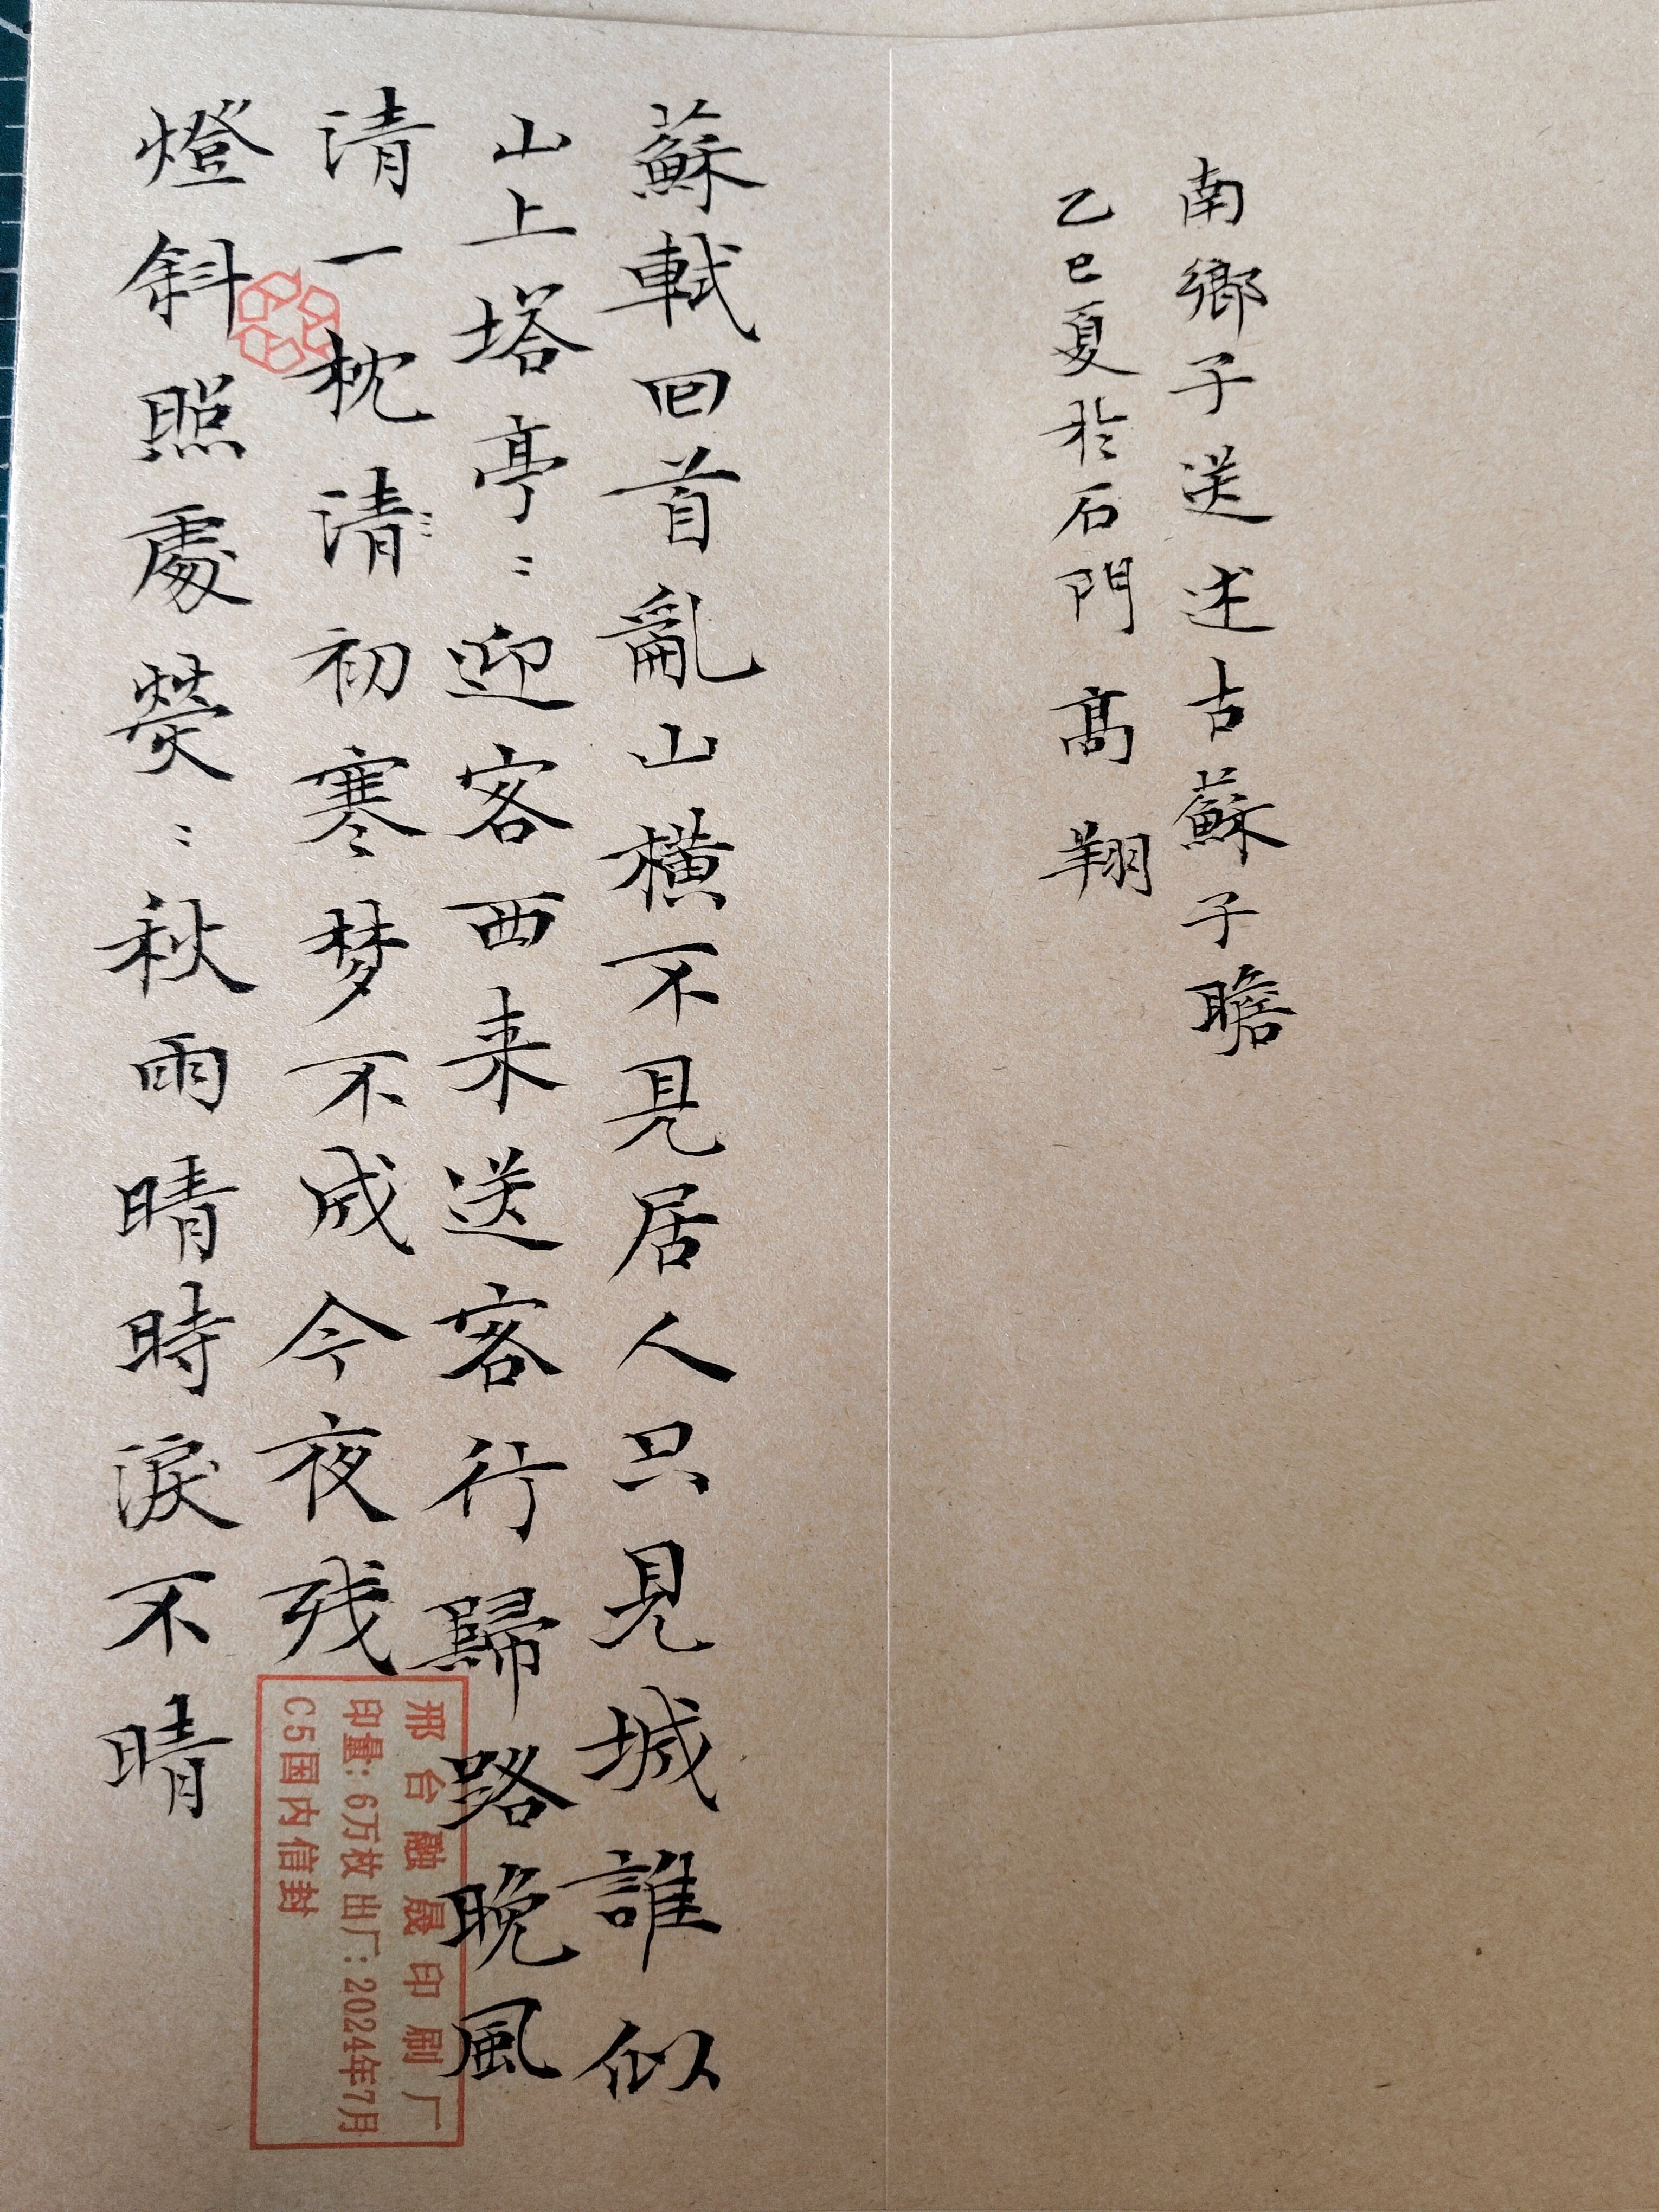 南鄉子送述古蘇子瞻
乙巳夏於石門 高翔
蘇軾回首亂山橫不見居人只見城誰似
山上塔亭〻迎客西来送客行歸路晚風
清一枕清初寒梦不成今夜残
燈斜照處熒〻秋雨晴時淚不晴
邢台融晟印刷厂
印量:6万枚 出厂:2024年7月
C5国内信封